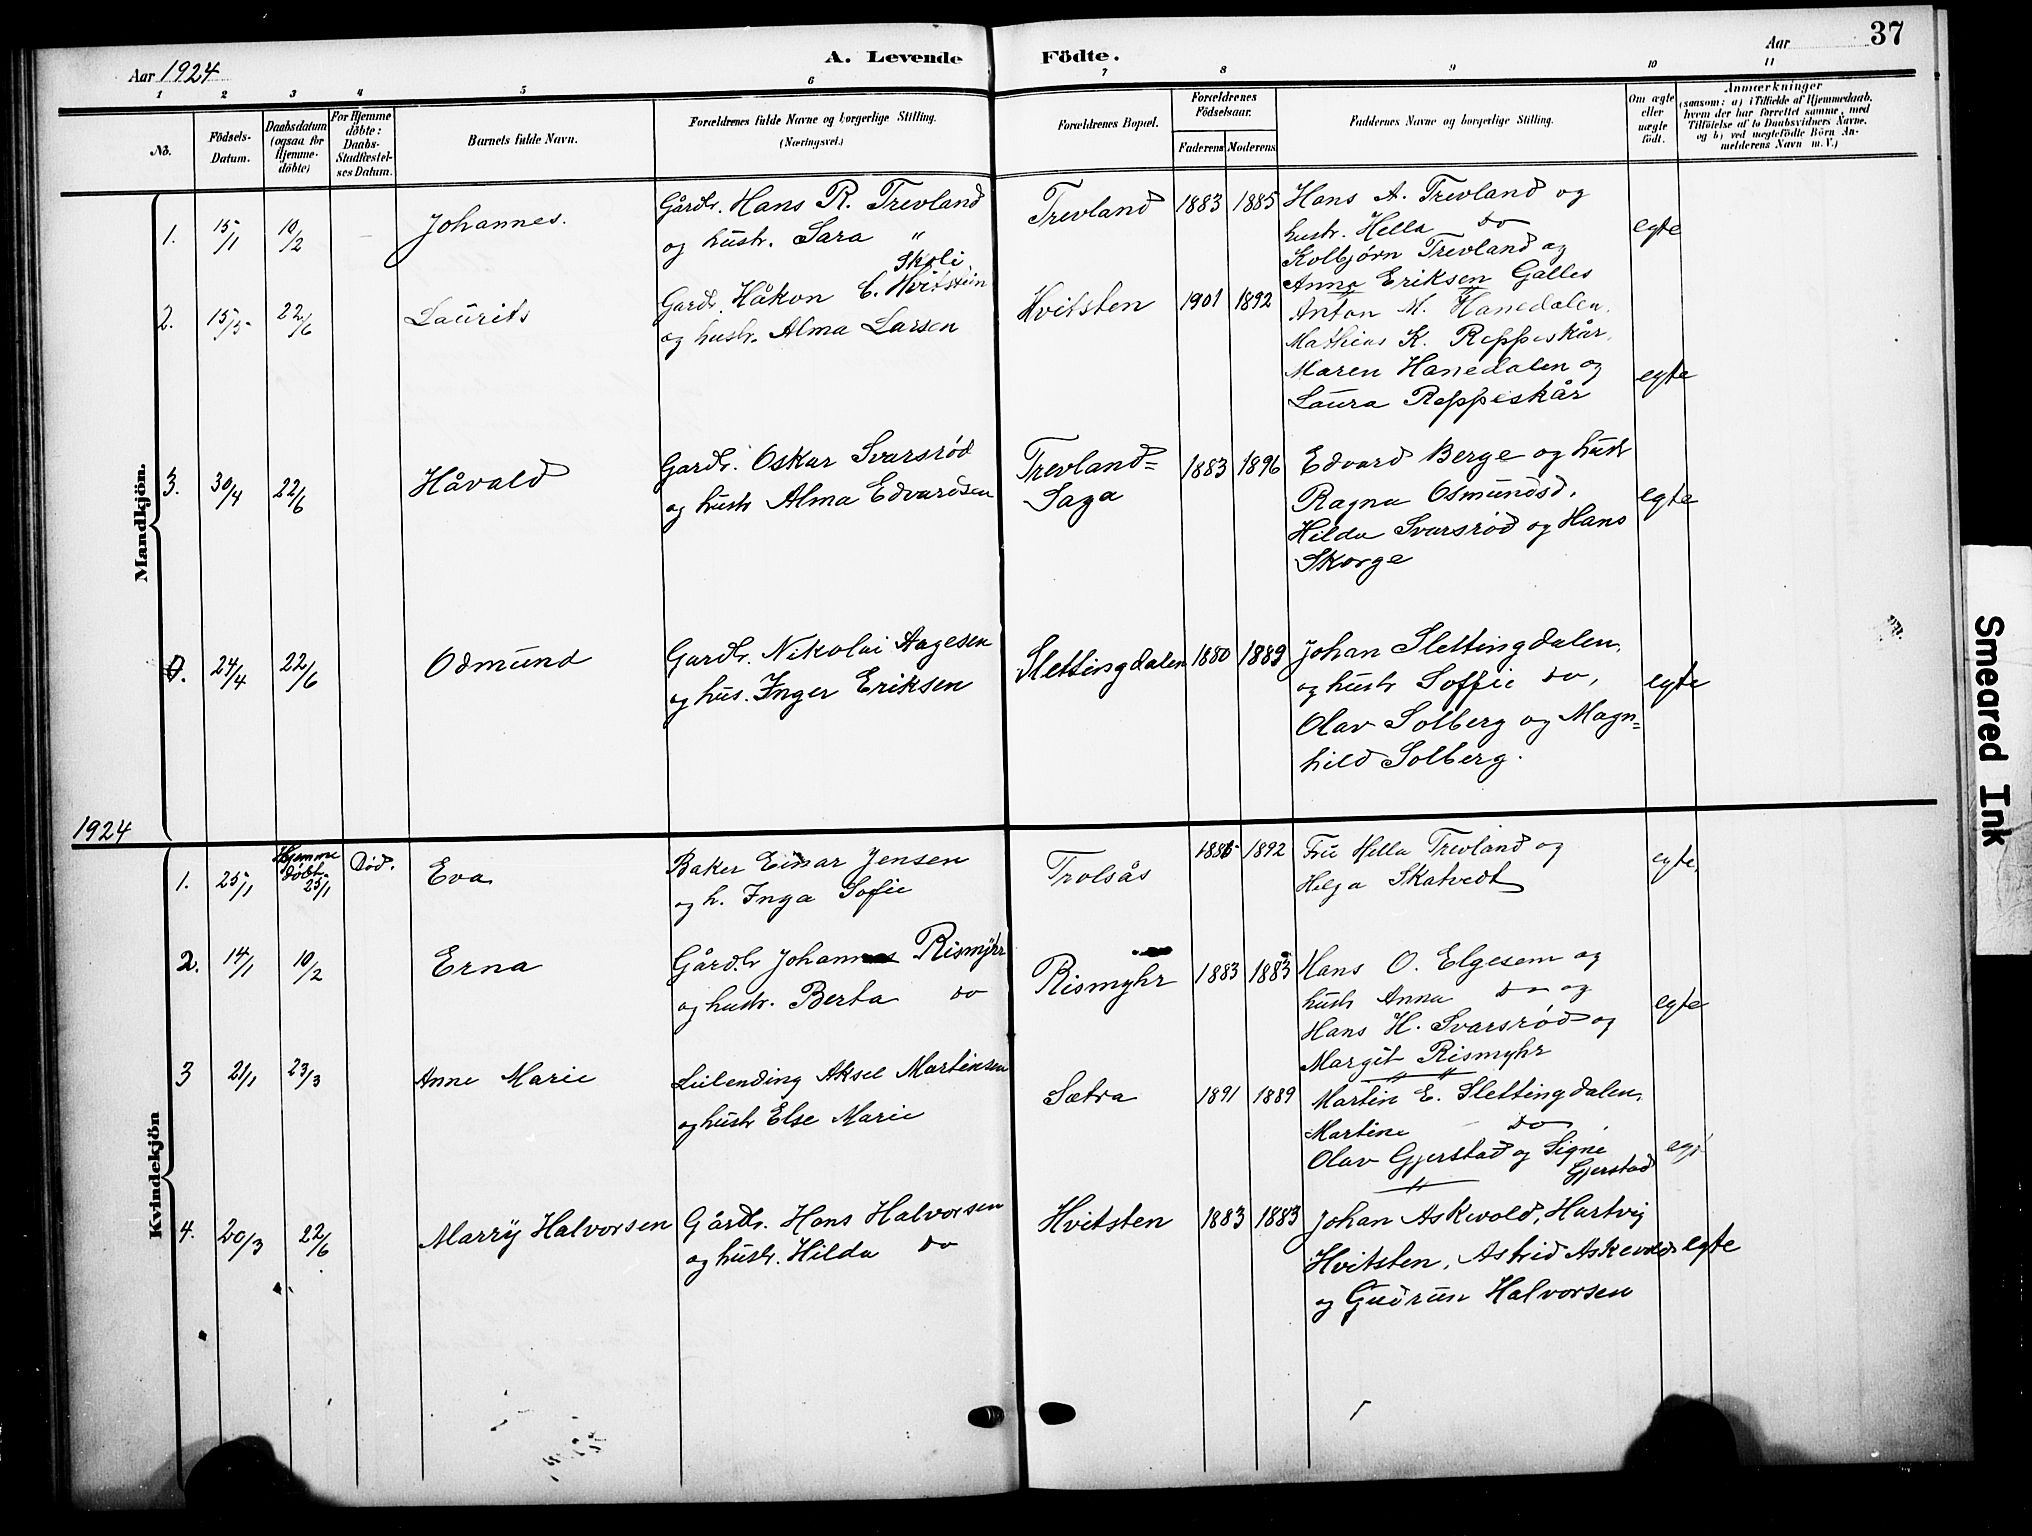 Aar 1924
A. Levende Födte.
Aar 37
1 2 3 4 5 6 7 8 9 10 11
No.
Födsels-Datum.
Daabsdatum (ogsaa for Hjemme-døbte)
For Hjemme døbte: Daabs-Stadfæstel-ses Datum.
Barnets fulde Navn.
Forældrenes fulde Navne og borgerlige Stilling.
(Næringsvei.)
Forældrenes Bopæl.
Forældrenes Födselsaar.
Faderens Moderens
Faddernes Navne og borgerlige Stilling.
Om ægte eller uægte født.
Anmærkninger
(saasom: a) i Tilfælde af Hjemmedaab,
hvem der har forrettet samme, med
Tilföielse af to Daabsvidners Navne,
og b) ved uægtefödte Börn An-
melderens Navn m. V.)
Mandkjön.
1. 15/1 10/2 Johannes. Gårdbr. Hans R. Trevland Trevland 1883 1885 Hans A. Trevland og
og hustr. Sara " hustr. Hella do egte
Kolbjørn Trevland og
Anna Eriksen Galles
Skoli
2. 15/5 22/6 Laurits Gardbr. Håkon C. Hvitstein Hvitsten 1901 1892 Anton M. Hanedalen,
og hustr. Alma Larsen Mathias K. Reppeskår,
Maren Hanedalen og egte
Laura Reppeskår
3. 30/4 22/6 Håvald Gardbr. Oskar Svarsrød Trevland= 1883 1896 Edvard Berge og hustr
og hustr Alma Edvardsen Saga Ragna Osmundsd, egte
Hilda Svarsrød og Hans
Skorge
24/4 22/6 Odmund Gardbr. Nikolai Aagesen Slettingdalen 1880 1889 Johan Slettingdalen,
og hus. Inger Eriksen og hustr Soffie do, egte
Olav Solberg og Magn=
hild Solberg.
1924
Kvindekjön
1. 25/1 Hjemme døbt 25/1 Død. Eva Baker Einar Jensen Trolsås 1892 Fru Hella Trevland og egte,
og h. Inga Sofie Helga Skatvedt
2. 14/1 10/2 Erna Gårdbr Johannes Rismyhr Rismyhr 1883 1883 Hans O. Elgesem og
og hustr. Berta do hustr Anna do og egte
Hans H. Svarsrød og
Margit Rismyhr
3 21/1 23/3 Anne Marie Leilending Aksel Martinsen Sætra 1891 1889 Martin E. Slettingdalen,
og hustr Else Marie Martine do
Olav Gjerstad og Signe
Gjerstad
4. 20/3 22/6 Marry Halvorsen Gårdbr. Hans Halvorsen Hvitsten 1883 1883 Johan Askevold, Hartvig
og hustr. Hilda do Hvitsten, Astrid Askevold egte
og Gudrun Halvorsen
Smeared Ink